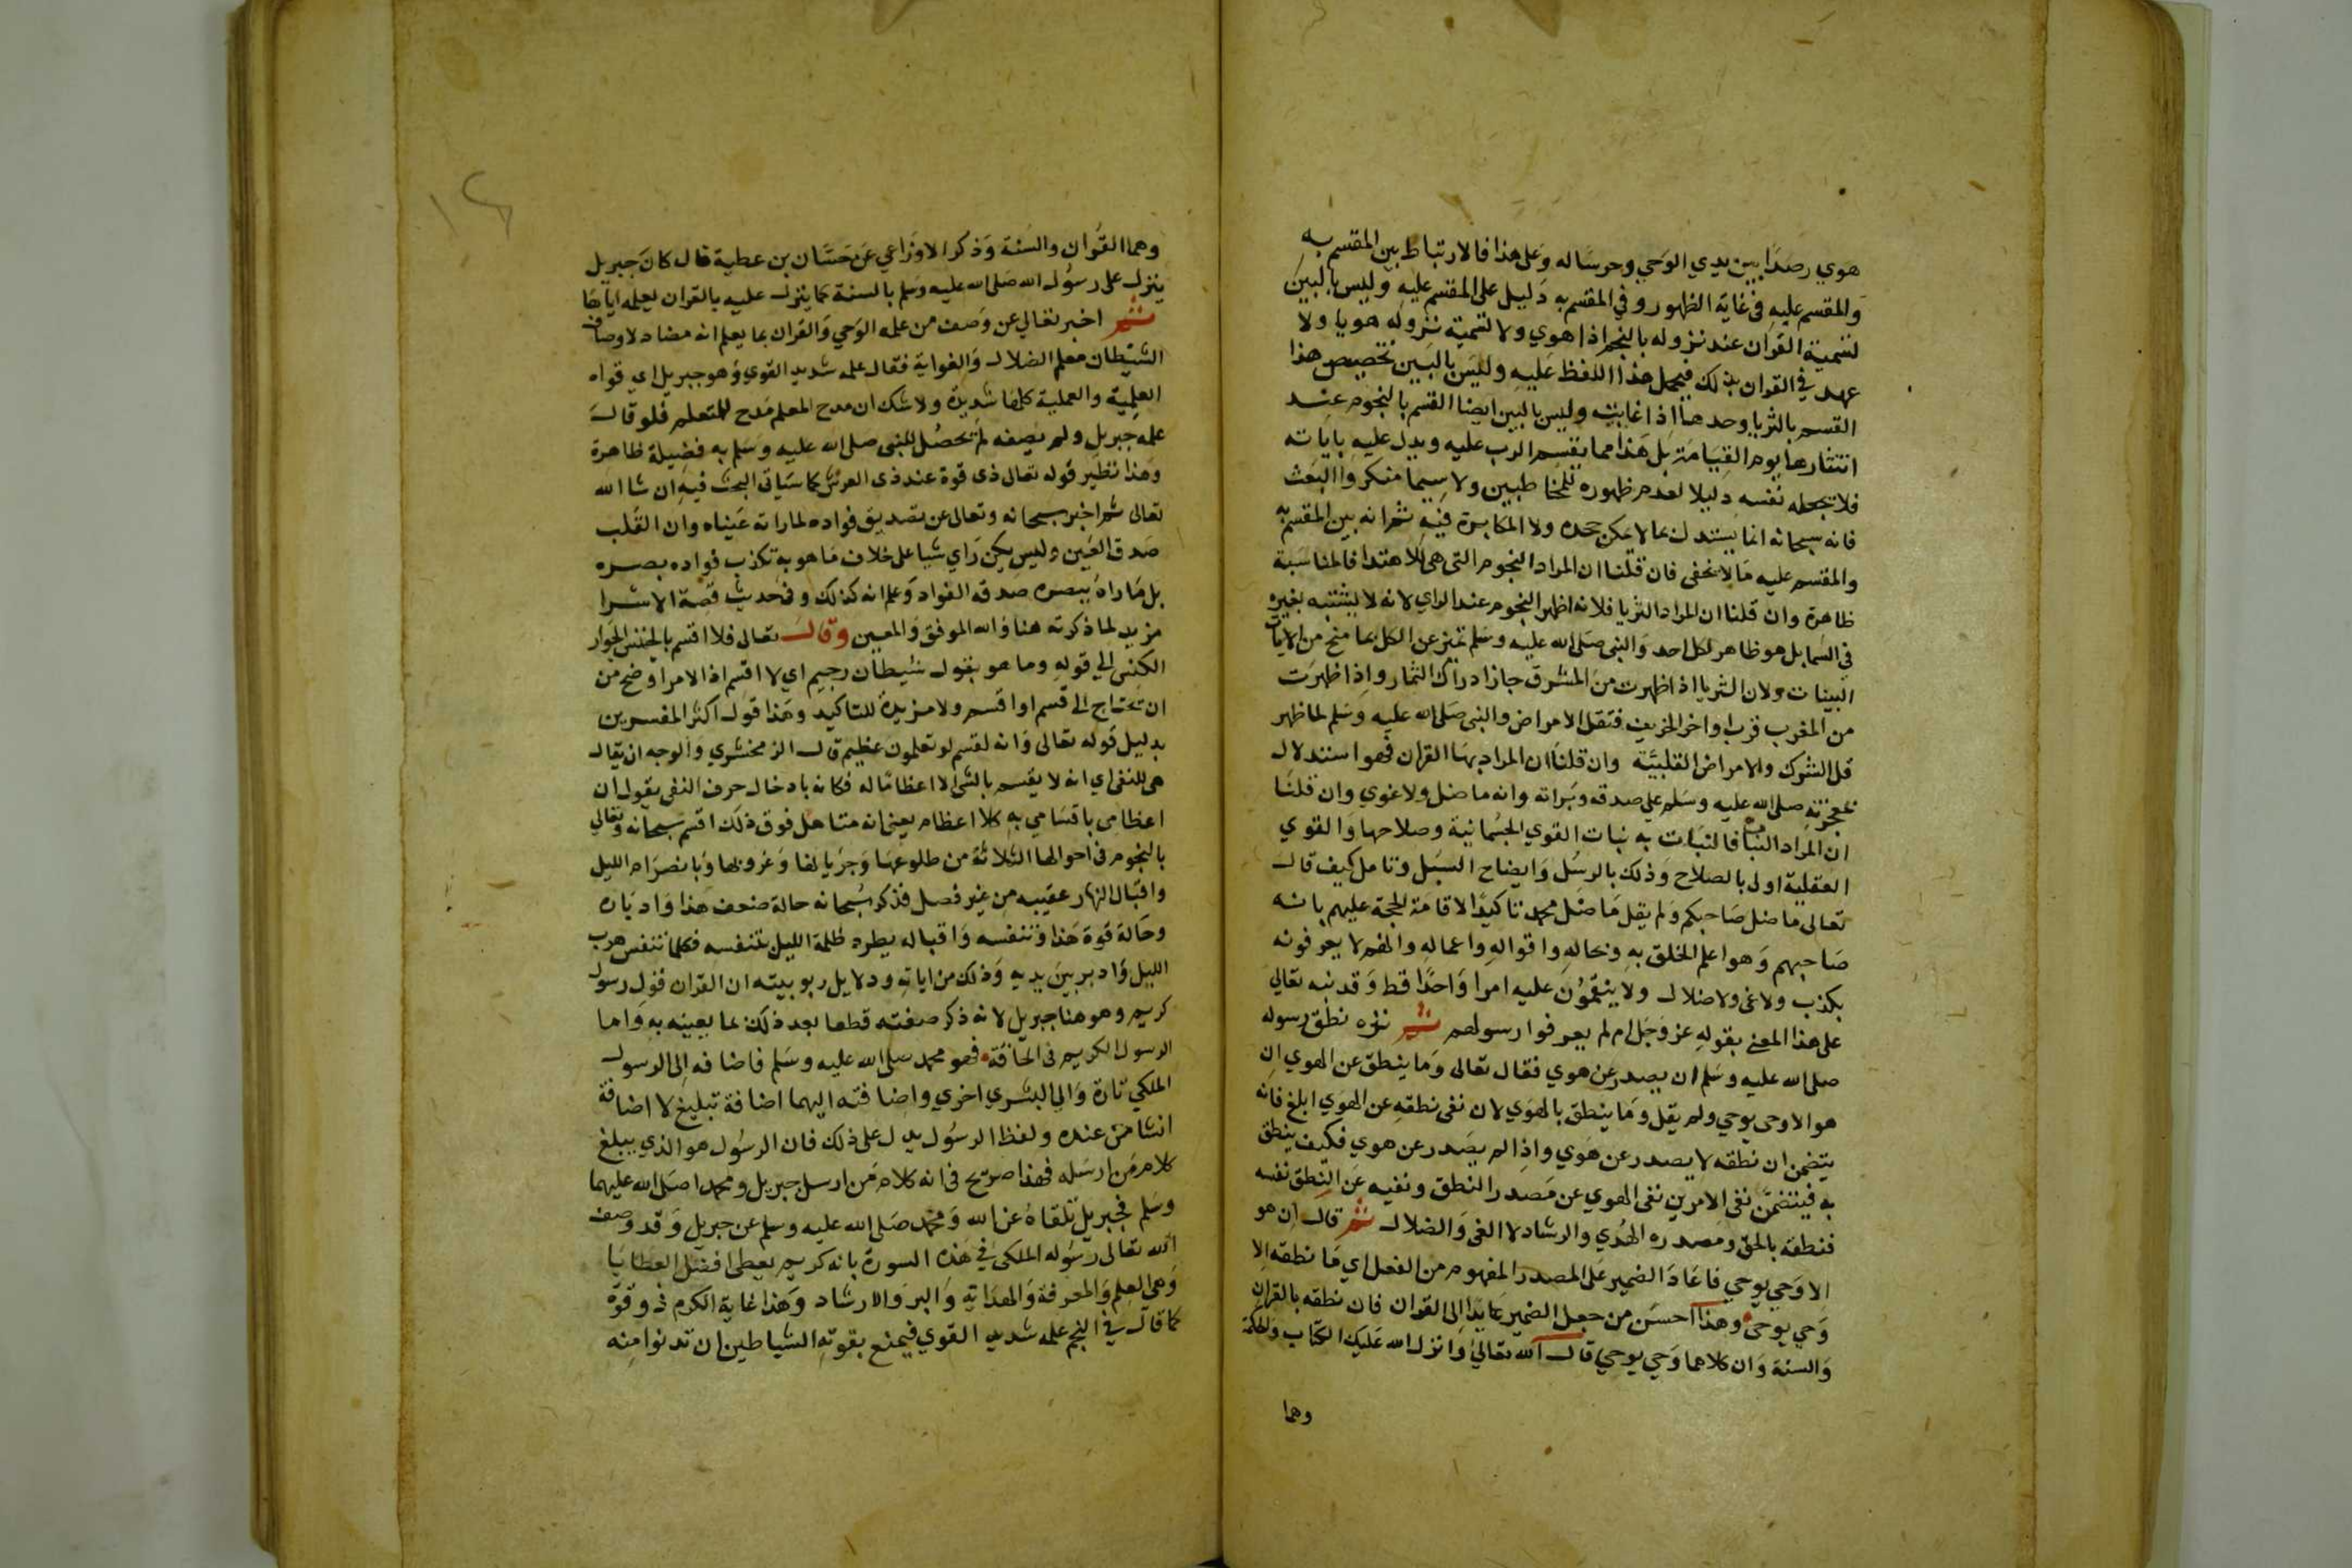 هوي رصدا بين يدي الوحي وحرسا له وعلى هذا فالارتباط بين المقسم به
والمقسم عليه في غاية الظهور وفي المقسم به دليل على المقسم عليه وليس بالبين
تسمية القران عند نزوله بالنجم اذا هوي ولا تسمية نزوله هويا ولا
عهد في القران بذلك فيحمل هذا اللفظ عليه وليس بالبين تخصيص هذا
القسم بالثريا وحدها اذا غابت وليس بالبين ايضا القسم بالنجوم عند
انتثارها يوم القيامة بل هذا مما يقسم الرب عليه ويدل عليه باياته
فلا يجعله نفسه دليلا لعدم ظهوره للمخاطبين ولا سيما منكروا البعث
فانه سبحانه انما يستدل بما لا يمكن جحده ولا المكابرة فيه ثم انه بين المقسم به
والمقسم عليه ما لا يخفى فان قلنا ان المراد النجوم التي هي للاهتدا فالمناسبة
ظاهرة وان قلنا ان المراد الثريا فلانه اظهر النجوم عند الراي لانه لا يشتبه بغيره
في السما بل هو ظاهر لكل احد والنبي صلى الله عليه وسلم تميز عن الكل بما منح من الايات
البينات ولان الثريا اذا ظهرت من المشرق حان ادراك الثمار واذا ظهرت
من المغرب قرب اواخر الخريف فتقل الامراض والنبي صلى الله عليه وسلم لما ظهر
قل الشرك والامراض القلبية وان قلنا ان المراد بها القران فهو استدلال
بمعجزته صلى الله عليه وسلم على صدقه وبراته وانه ما ضل ولا غوي وان قلنا
ان المراد النبات فالنبات به نبات القوي الجسمانية وصلاحها والقوي
العقلية اولى بالصلاح وذلك بالرسل وايضاح السبل وتامل كيف قال
تعالى ما ضل صاحبكم ولم يقل ما ضل محمد تاكيدا لاقامة الحجة عليهم بانه
صاحبهم وهو اعلم الخلق به وبحاله واقواله واعماله وانهم لا يعرفونه
بكذب ولا غي ولا ضلال ولا ينقمون عليه امرا واحدا قط وقد نبه تعالي
على هذا المعنى بقوله عز وجل ام لم يعرفوا رسولهم ثم نزه نطق رسوله
صلى الله عليه وسلم ان يصدر عن هوي فقال تعالى وما ينطق عن الهوي ان
هو الا وحي يوحي ولم يقل وما ينطق بالهوي لان نفى نطقه عن الهوي ابلغ فانه
يتضمن ان نطقه لا يصدر عن هوي واذا لم يصدر عن هوي فكيف ينطق
به فيتضمن نفى الامرين نفى الهوي عن مصدر النطق ونفيه عن النطق نفسه
فنطقه بالحق ومصدره الهدي والرشاد لا الغي والضلال ثم قال ان هو
الا وحي يوحي فاعاد الضمير على المصدر المفهوم من الفعل اي ما نطقه الا
وحي يوحى وهذا احسن من جعل الضمير عايدا الى القران فان نطقه بالقران
والسنة وان كلاهما وحي يوحي قال الله تعالي وانزل الله عليك الكتاب والحكمة
وهما
١٤
وهما القران والسنة وذكر الاوزاعي عن حسان بن عطية قال كان جبريل
ينزل على رسول الله صلى الله عليه وسلم بالسنة كما ينزل عليه بالقران يعلمه اياها
ثم اخبر تعالي عن وصف من علمه الوحي والقران بما يعلم انه مضاد لاوصاف
الشيطان معلم الضلال والغواية فقال علمه شديد القوي وهو جبريل اي قواه
العلمية والعملية كلها شديدة ولا شك ان مدح المعلم مدح للمتعلم فلو قال
علمه جبريل ولم يصفه لم تحصل للنبي صلى الله عليه وسلم به فضيلة ظاهرة
وهذا نظير قوله تعالى ذى قوة عند ذى العرش كما سياتي البحث فيه ان شا الله
تعالى ثم اخبر سبحانه وتعالى عن تصديق فواده لما راته عيناه وان القلب
صدق العين وليس كمن راي شيا على خلاف ما هو به تكذب فواده بصره
بل ما راه ببصره صدقه الفواد وعلم انه كذلك وفي حديث قصة الاسرا
مزيد لما ذكرته هنا والله الموفق والمعين وقال تعالى فلا اقسم بالخنس الجوار
الكنس الي قوله وما هو بقول شيطان رجيم اي لا اقسم اذ الامر اوضح من
ان يحتاج الى قسم او اقسم ولا مزيدة للتاكيد وهذا قول اكثر المفسرين
بدليل قوله تعالى وانه لقسم لو تعلمون عظيم قال الزمخشري والوجه ان يقال
هي للنفي اي انه لا يقسم بالشي الا اعظاما له فكانه بادخال حرف النفي يقول ان
اعظامي باقسامي به كلا اعظام يعني انه يستاهل فوق ذلك اقسم سبحانه وتعالي
بالنجوم في احوالها الثلاثة من طلوعها وجريانها وغروبها وبانصرام الليل
واقبال النهار عقيبه من غير فصل فذكر سبحانه حالة ضعف هذا وادباره
وحالة قوة هذا وتنفسه واقباله يطرد ظلمة الليل بتنفسه فكلما تنفس هرب
الليل وادبر بين يديه وذلك من اياته ودلايل ربوبيته ان القران قول رسول
كريم وهو هنا جبريل لانه ذكر صفته قطعا بعد ذلك بما يعينه به واما
الرسول الكريم في الحاقة فهو محمد صلى الله عليه وسلم فاضافه الى الرسول
الملكي تارة والي البشري اخري واضافته اليهما اضافة تبليغ لا اضافة
انشا من عنده ولفظ الرسول يدل على ذلك فان الرسول هو الذي يبلغ
كلام من ارسله فهذا صريح في انه كلام من ارسل جبريل ومحمدا صلى الله عليهما
وسلم فجبريل تلقاه عن الله ومحمد صلى الله عليه وسلم عن جبريل وقد وصف
الله تعالى رسوله الملكي في هذه السورة بانه كريم يعطى افضل العطايا
وهي العلم والمعرفة والهداية والبر والارشاد وهذا غاية الكرم ذو قوة
كما قال في النجم علمه شديد القوي فيمنع بقوته الشياطين ان تدنوا منه